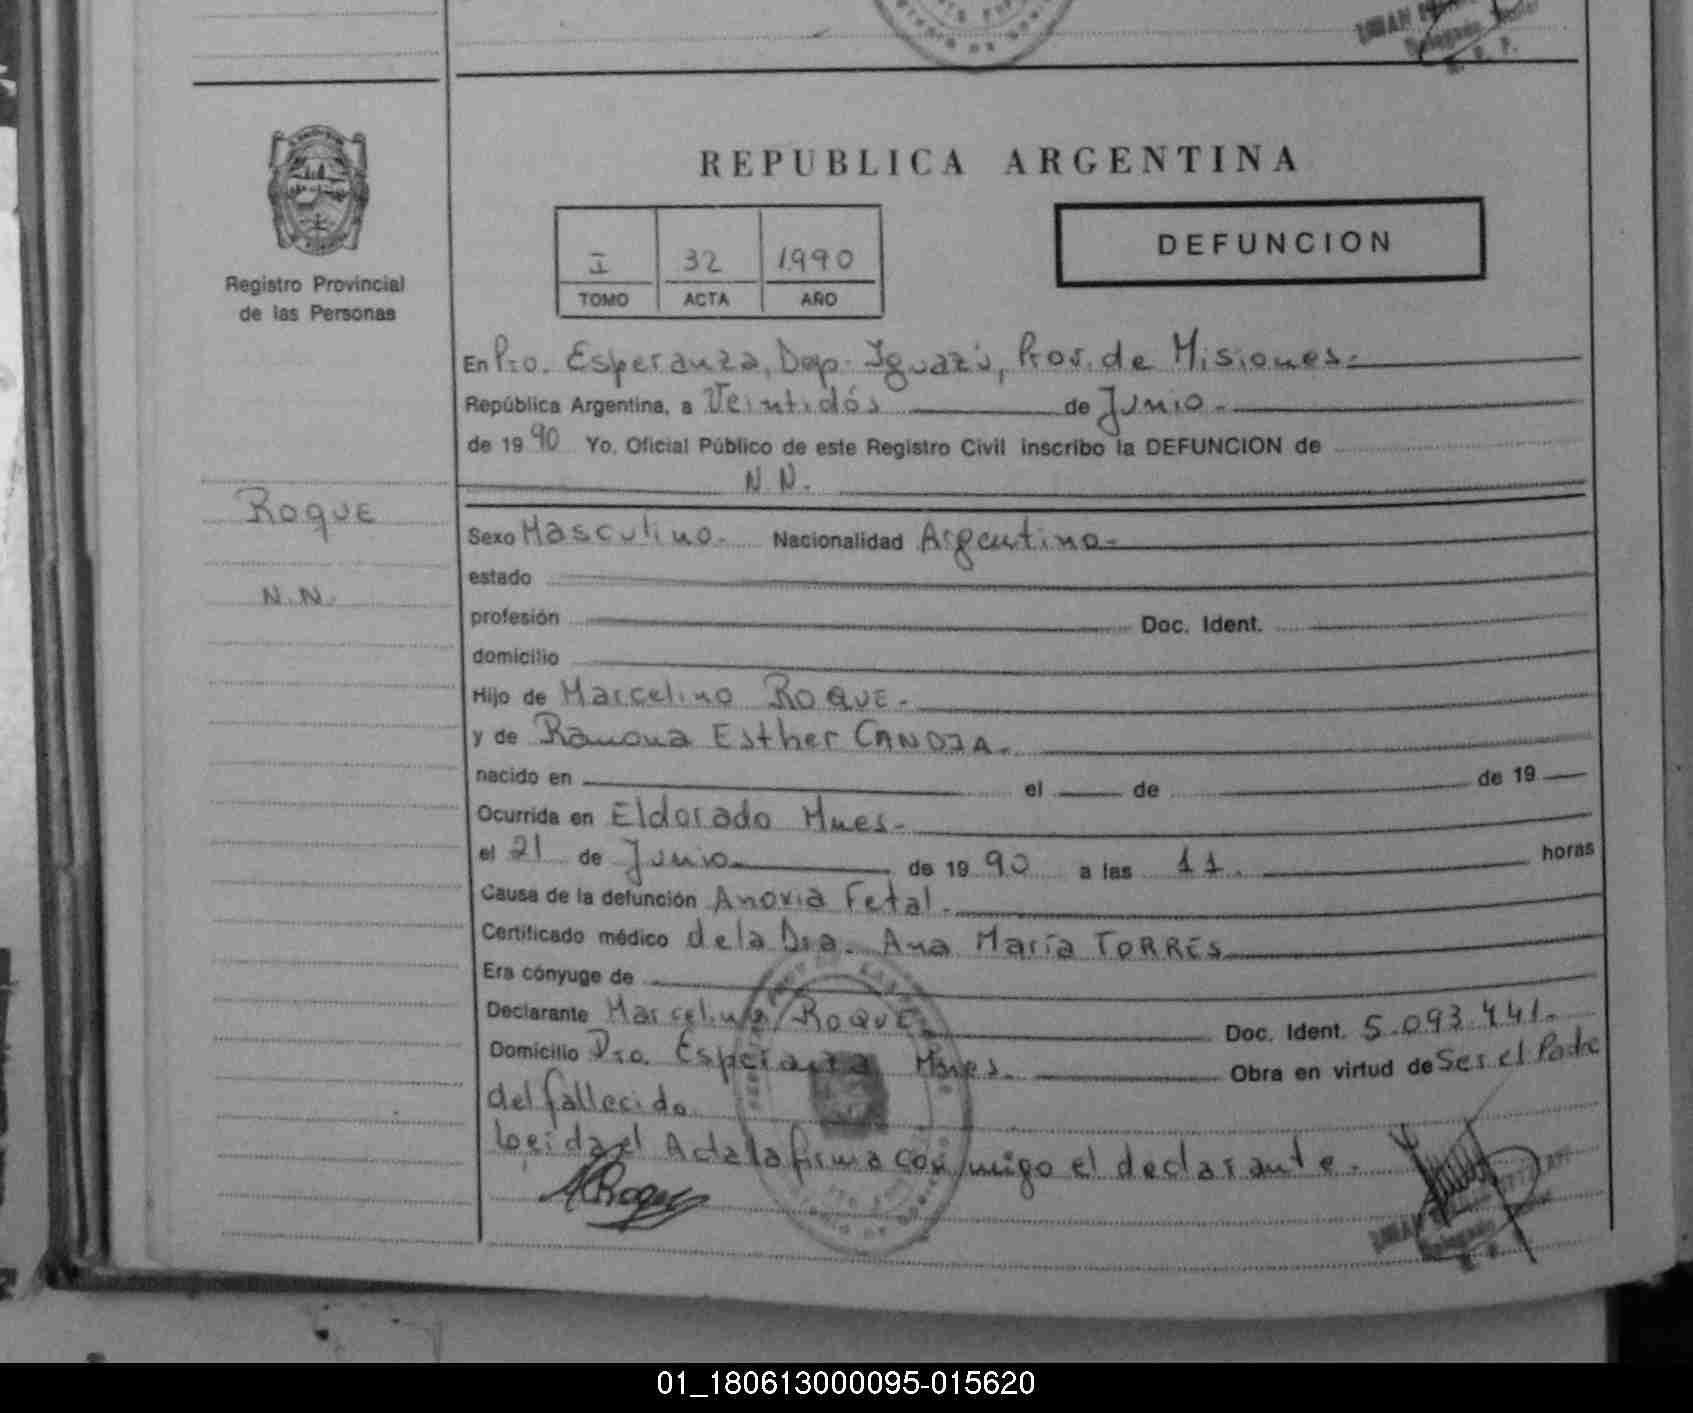 REPUBLICA ARGENTINA
I 32 1990
TOMO ACTA AÑO
DEFUNCION
Registro Provincial
de las Personas
En Pto. Esperanza, Dep. Iguazú, Prov. de Misiones.
República Argentina, a Veintidós de Junio.
de 19 90 Yo, Oficial Público de este Registro Civil inscribo la DEFUNCION de
N.N.
Roque
N.N.
Sexo Masculino. Nacionalidad Argentino.
estado
profesión Doc. Ident.
domicilio
Hijo de Marcelino ROQUE.
y de Ramona Esther CANDIA.
nacido en el de de 19
Ocurrida en Eldorado Mnes.
el 21 de Junio de 19 90 a las 11. horas
Causa de la defunción Anoxia Fetal.
Certificado médico de la Dra. Ana María TORRES
Era cónyuge de
Declarante Marcelino ROQUE Doc. Ident. 5.093.441.
Domicilio Pto. Esperanza Mnes. Obra en virtud de Ser el Padre
del fallecido
Leida el Acta la firma conmigo el declarante.
01_180613000095-015620